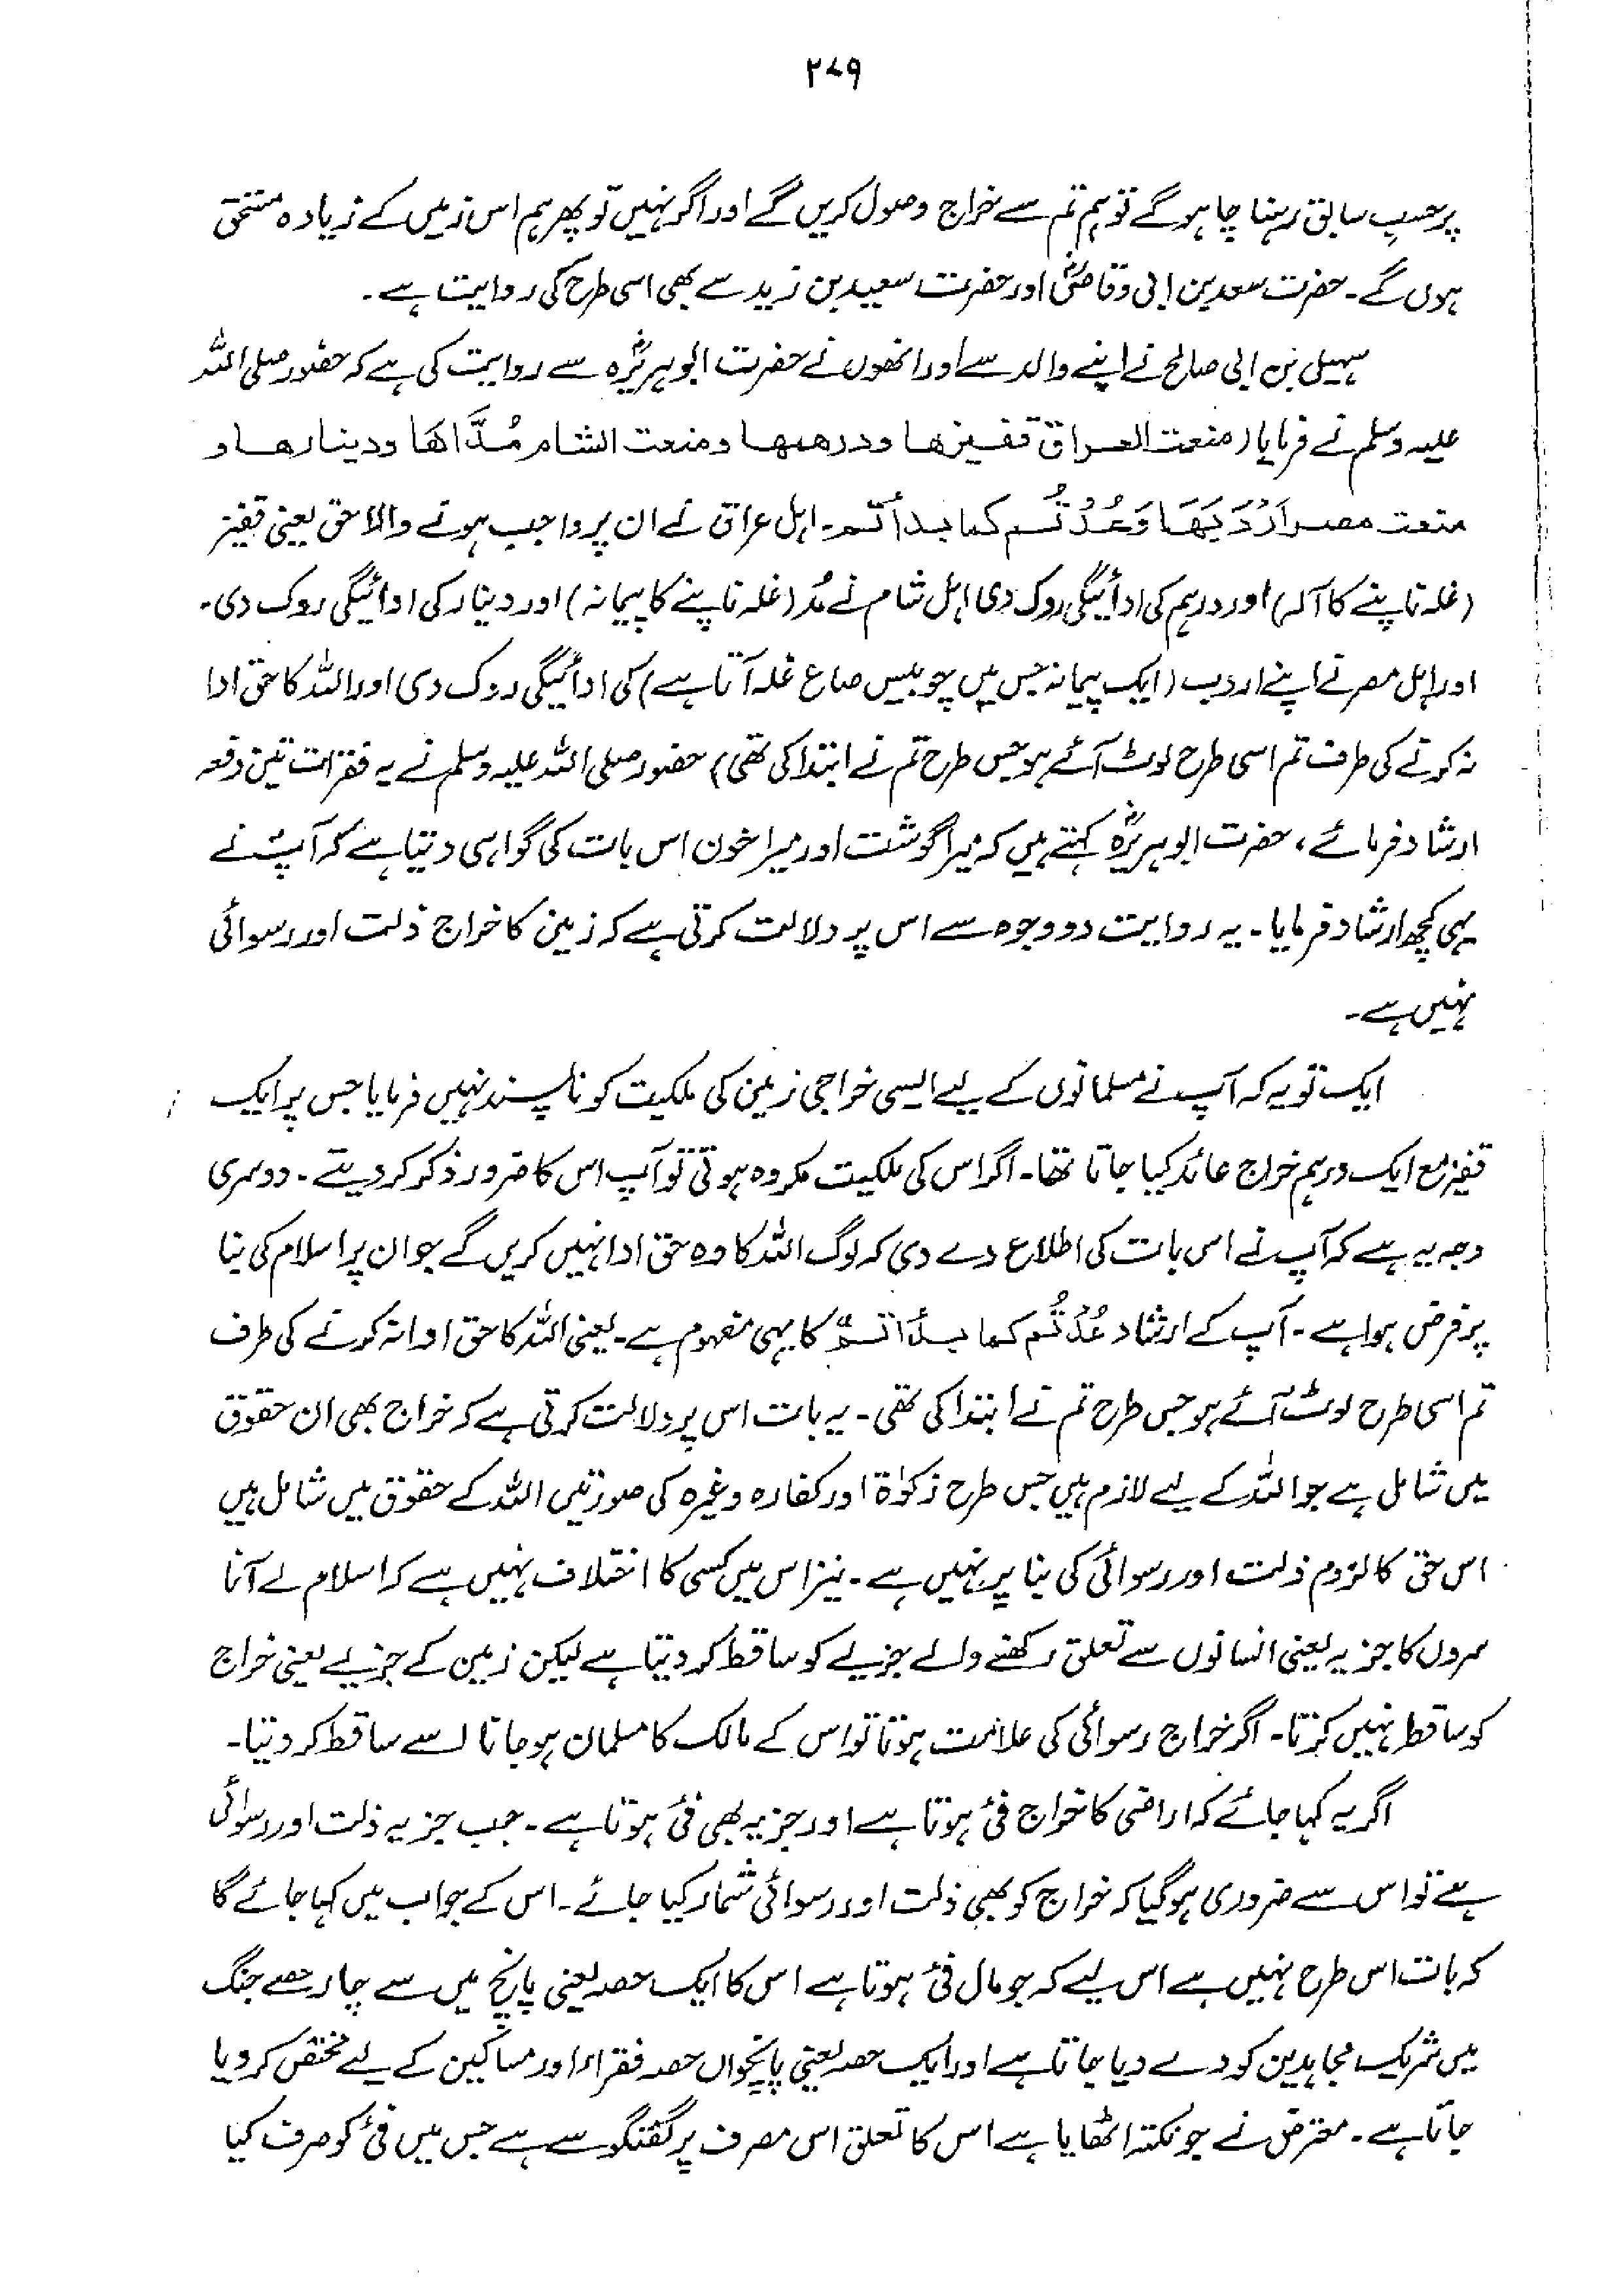 ۲۷۹
پر حسبِ سابق رہنا چاہو گے تو ہم تم سے خراج وصول کریں گے اور اگر نہیں تو پھر ہم اس زمین کے زیادہ مستحق
ہوں گے۔ حضرت سعد بن ابی وقاصؓ اور حضرت سعید بن زید سے بھی اسی طرح کی روایت ہے۔
سہیل بن ابی صالح نے اپنے والد سے اور انھوں نے حضرت ابوہریرؓہ سے روایت کی ہے کہ حضور صلی اللہ
علیہ وسلم نے فرمایا (منعت العراق قفیزھا ودرھمھا ومنعت الشام مُدَّاھَا ودینارھا و
منعت مصر اَرْدَبَھَا وَعُدْتُم کما بدأتم۔ اہل عراق نے ان پر واجب ہونے والا حق یعنی قفیز
(غلہ ناپنے کا آلہ) اور درہم کی ادائیگی روک دی اہل شام نے مُد (غلہ ناپنے کا پیمانہ) اور دینار کی ادائیگی روک دی۔
اور اہل مصر نے اپنے اردب (ایک پیمانہ جس میں چوبیس صاع غلہ آتا ہے) کی ادائیگی روک دی اور اللہ کا حق ادا
نہ کرنے کی طرف تم اسی طرح لوٹ آئے ہو جس طرح تم نے ابتدا کی تھی) حضور صلی اللہ علیہ وسلم نے یہ فقرات تین دفعہ
ارشاد فرمائے، حضرت ابوہریرؓہ کہتے ہیں کہ میرا گوشت اور میرا خون اس بات کی گواہی دیتا ہے کہ آپؐ نے
یہی کچھ ارشاد فرمایا۔ یہ روایت دو وجوہ سے اس پر دلالت کرتی ہے کہ زمین کا خراج ذلت اور رسوائی
نہیں ہے۔
ایک تو یہ کہ آپ نے مسلمانوں کے لیے ایسی خراجی زمین کی ملکیت کو ناپسند نہیں فرمایا جس پر ایک
قفیز مع ایک درہم خراج عائد کیا جاتا تھا۔ اگر اس کی ملکیت مکروہ ہوتی تو آپ اس کا ضرور ذکر کر دیتے۔ دوسری
وجہ یہ ہے کہ آپ نے اس بات کی اطلاع دے دی کہ لوگ اللہ کا وہ حق ادا نہیں کریں گے جو ان پر اسلام کی بنا
پر فرض ہوا ہے۔ آپ کے ارشاد عُدْتُم کما بدأتم کا یہی مفہوم ہے۔ یعنی اللہ کا حق ادا نہ کرنے کی طرف
تم اسی طرح لوٹ آئے ہو جس طرح تم نے ابتدا کی تھی۔ یہ بات اس پر دلالت کرتی ہے کہ خراج بھی ان حقوق
میں شامل ہے جو اللہ کے لیے لازم ہیں جس طرح زکوٰۃ اور کفارہ وغیرہ کی صورتیں اللہ کے حقوق میں شامل ہیں
اس حق کا لزوم ذلت اور رسوائی کی بنا پر نہیں ہے۔ نیز اس میں کسی کا اختلاف نہیں ہے کہ اسلام لے آنا
سروں کا جزیہ یعنی انسانوں سے تعلق رکھنے والے جزیے کو ساقط کر دیتا ہے لیکن زمین کے جزیے یعنی خراج
کو ساقط نہیں کرتا۔ اگر خراج رسوائی کی علامت ہوتا تو اس کے مالک کا مسلمان ہو جانا اسے ساقط کر دیتا۔
اگر یہ کہا جائے کہ اراضی کا خراج فئ ہوتا ہے اور جزیہ بھی فئ ہوتا ہے۔ جب جزیہ ذلت اور رسوائی
ہے تو اس سے ضروری ہو گیا کہ خراج کو بھی ذلت اور رسوائی شمار کیا جائے۔ اس کے جواب میں کہا جائے گا
کہ بات اس طرح نہیں ہے اس لیے کہ جو مال فئ ہوتا ہے اس کا ایک حصہ یعنی پانچ میں سے چار حصے جنگ
میں شریک مجاہدین کو دے دیا جاتا ہے اور ایک حصہ یعنی پانچواں حصہ فقراء اور مساکین کے لیے مختص کر دیا
جاتا ہے۔ معترض نے جو نکتہ اٹھایا ہے اس کا تعلق اس مصرف پر گفتگو سے ہے جس میں فئ کو صرف کیا